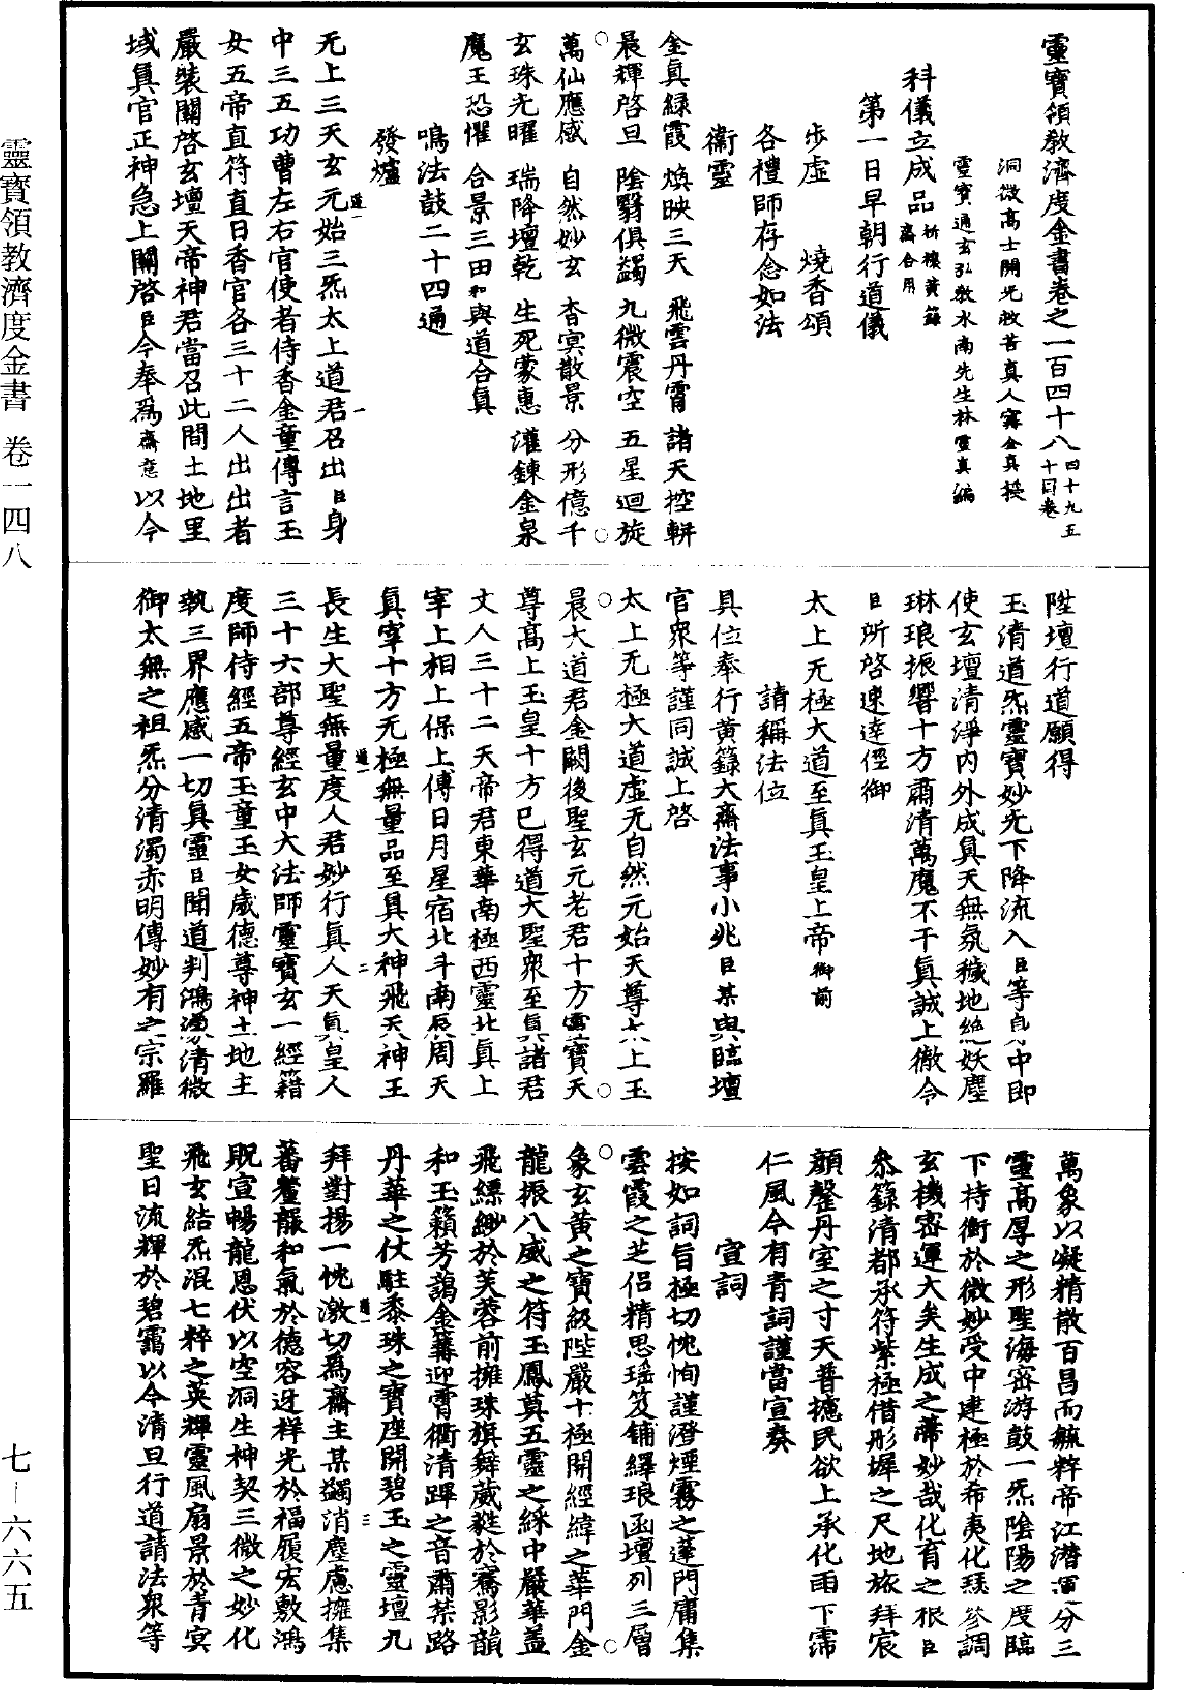 靈寶領教濟度金書卷之一百四十八
洞微高士開光救苦真人寗全真授
靈寶通玄弘教水南先生林靈真編
科儀立成品祈禳黃籙齋合用
第一日早朝行道儀
步虛　燒香頌
各禮師存念如法
衞靈
金真綠霞　煥映三天　飛雲丹霄　諸天控軿
晨輝啓旦　陰翳俱蠲　九微震空　五星迴旋
萬仙應感　自然妙玄　杳冥散景　分形億千
玄珠光曜　瑞降壇乾　生死蒙惠　灌鍊金泉
魔王恐懼　合景三田和與道合真
鳴法鼓二十四通
發爐
无上三天玄元始三炁太上道君召出臣身
中三五功曹左右官使者侍香金童傳言玉
女五帝直符直日香官各三十二人出出者
嚴裝關啓玄壇天帝神君當召此間土地里
域真官正神急上關啓臣今奉爲齋意以今
陞壇行道願得
玉清道炁靈寶妙光下降流入臣等身中即
使玄壇清淨内外成真天無氛穢地絶妖塵
琳琅振響十方肅清萬魔不干真誠上徹令
臣所啓速達徑御
太上无極大道至真玉皇上帝御前
請稱法位
具位奉行黃籙大齋法事小兆臣某與臨壇
官衆等謹同誠上啓
太上无極大道虛无自然元始天尊太上玉
晨大道君金闕後聖玄元老君十方靈寶天
尊高上玉皇十方已得道大聖衆至真諸君
丈人三十二天帝君東華南極西靈北真上
宰上相上保上傅日月星宿北斗南辰周天
真宰十方无極無量品至真大神飛天神王
長生大聖無量度人君妙行真人天真皇人
三十六部尊經玄中大法師靈寶玄一經籍
度師侍經五帝玉童玉女歲德尊神土地主
執三界應感一切真靈臣聞道判鴻濛清微
御太無之祖炁分清濁赤明傳妙有之宗羅
萬象以凝精散百昌而毓粹帝江潛運分三
靈高厚之形聖海密游鼓一炁陰陽之度臨
下持衡於微妙受中建極於希夷化繇參調
玄機密運大矣生成之蒂妙哉化有之根臣
叅籙清都承符紫極借彤墀之尺地旅拜宸
顏罄丹室之寸天普攄民欲上承化雨下霈
仁風今有青詞謹當宣奏
宣詞
按如詞旨極切忱恂謹澄煙霧之蓬門庸集
雲霞之芝侣精思瑶笈鋪繹琅函壇列三層
象玄黃之寶級陛嚴十極開經緯之華門金
龍振八威之符玉鳳奠五靈之綵中嚴華蓋
飛縹緲於芙蓉前擁珠旗舞葳蕤於騫影韻
和玉籟芳藹金蕤迎霄衢清蹕之音肅禁路
丹華之仗駐黍珠之寶座開碧玉之靈壇九
拜對揚一忱激切爲齋主某蠲消塵慮擁集
蕃釐羅和氣於德容迓祥光於福履宏敷鴻
貺宣暢龍恩伏以空洞生神契三微之妙化
飛玄結炁混七粹之英輝靈風扇景於青冥
聖日流輝於碧靄以今清旦行道請法衆等
靈寶領教濟度金書　卷一四八
七—六六五